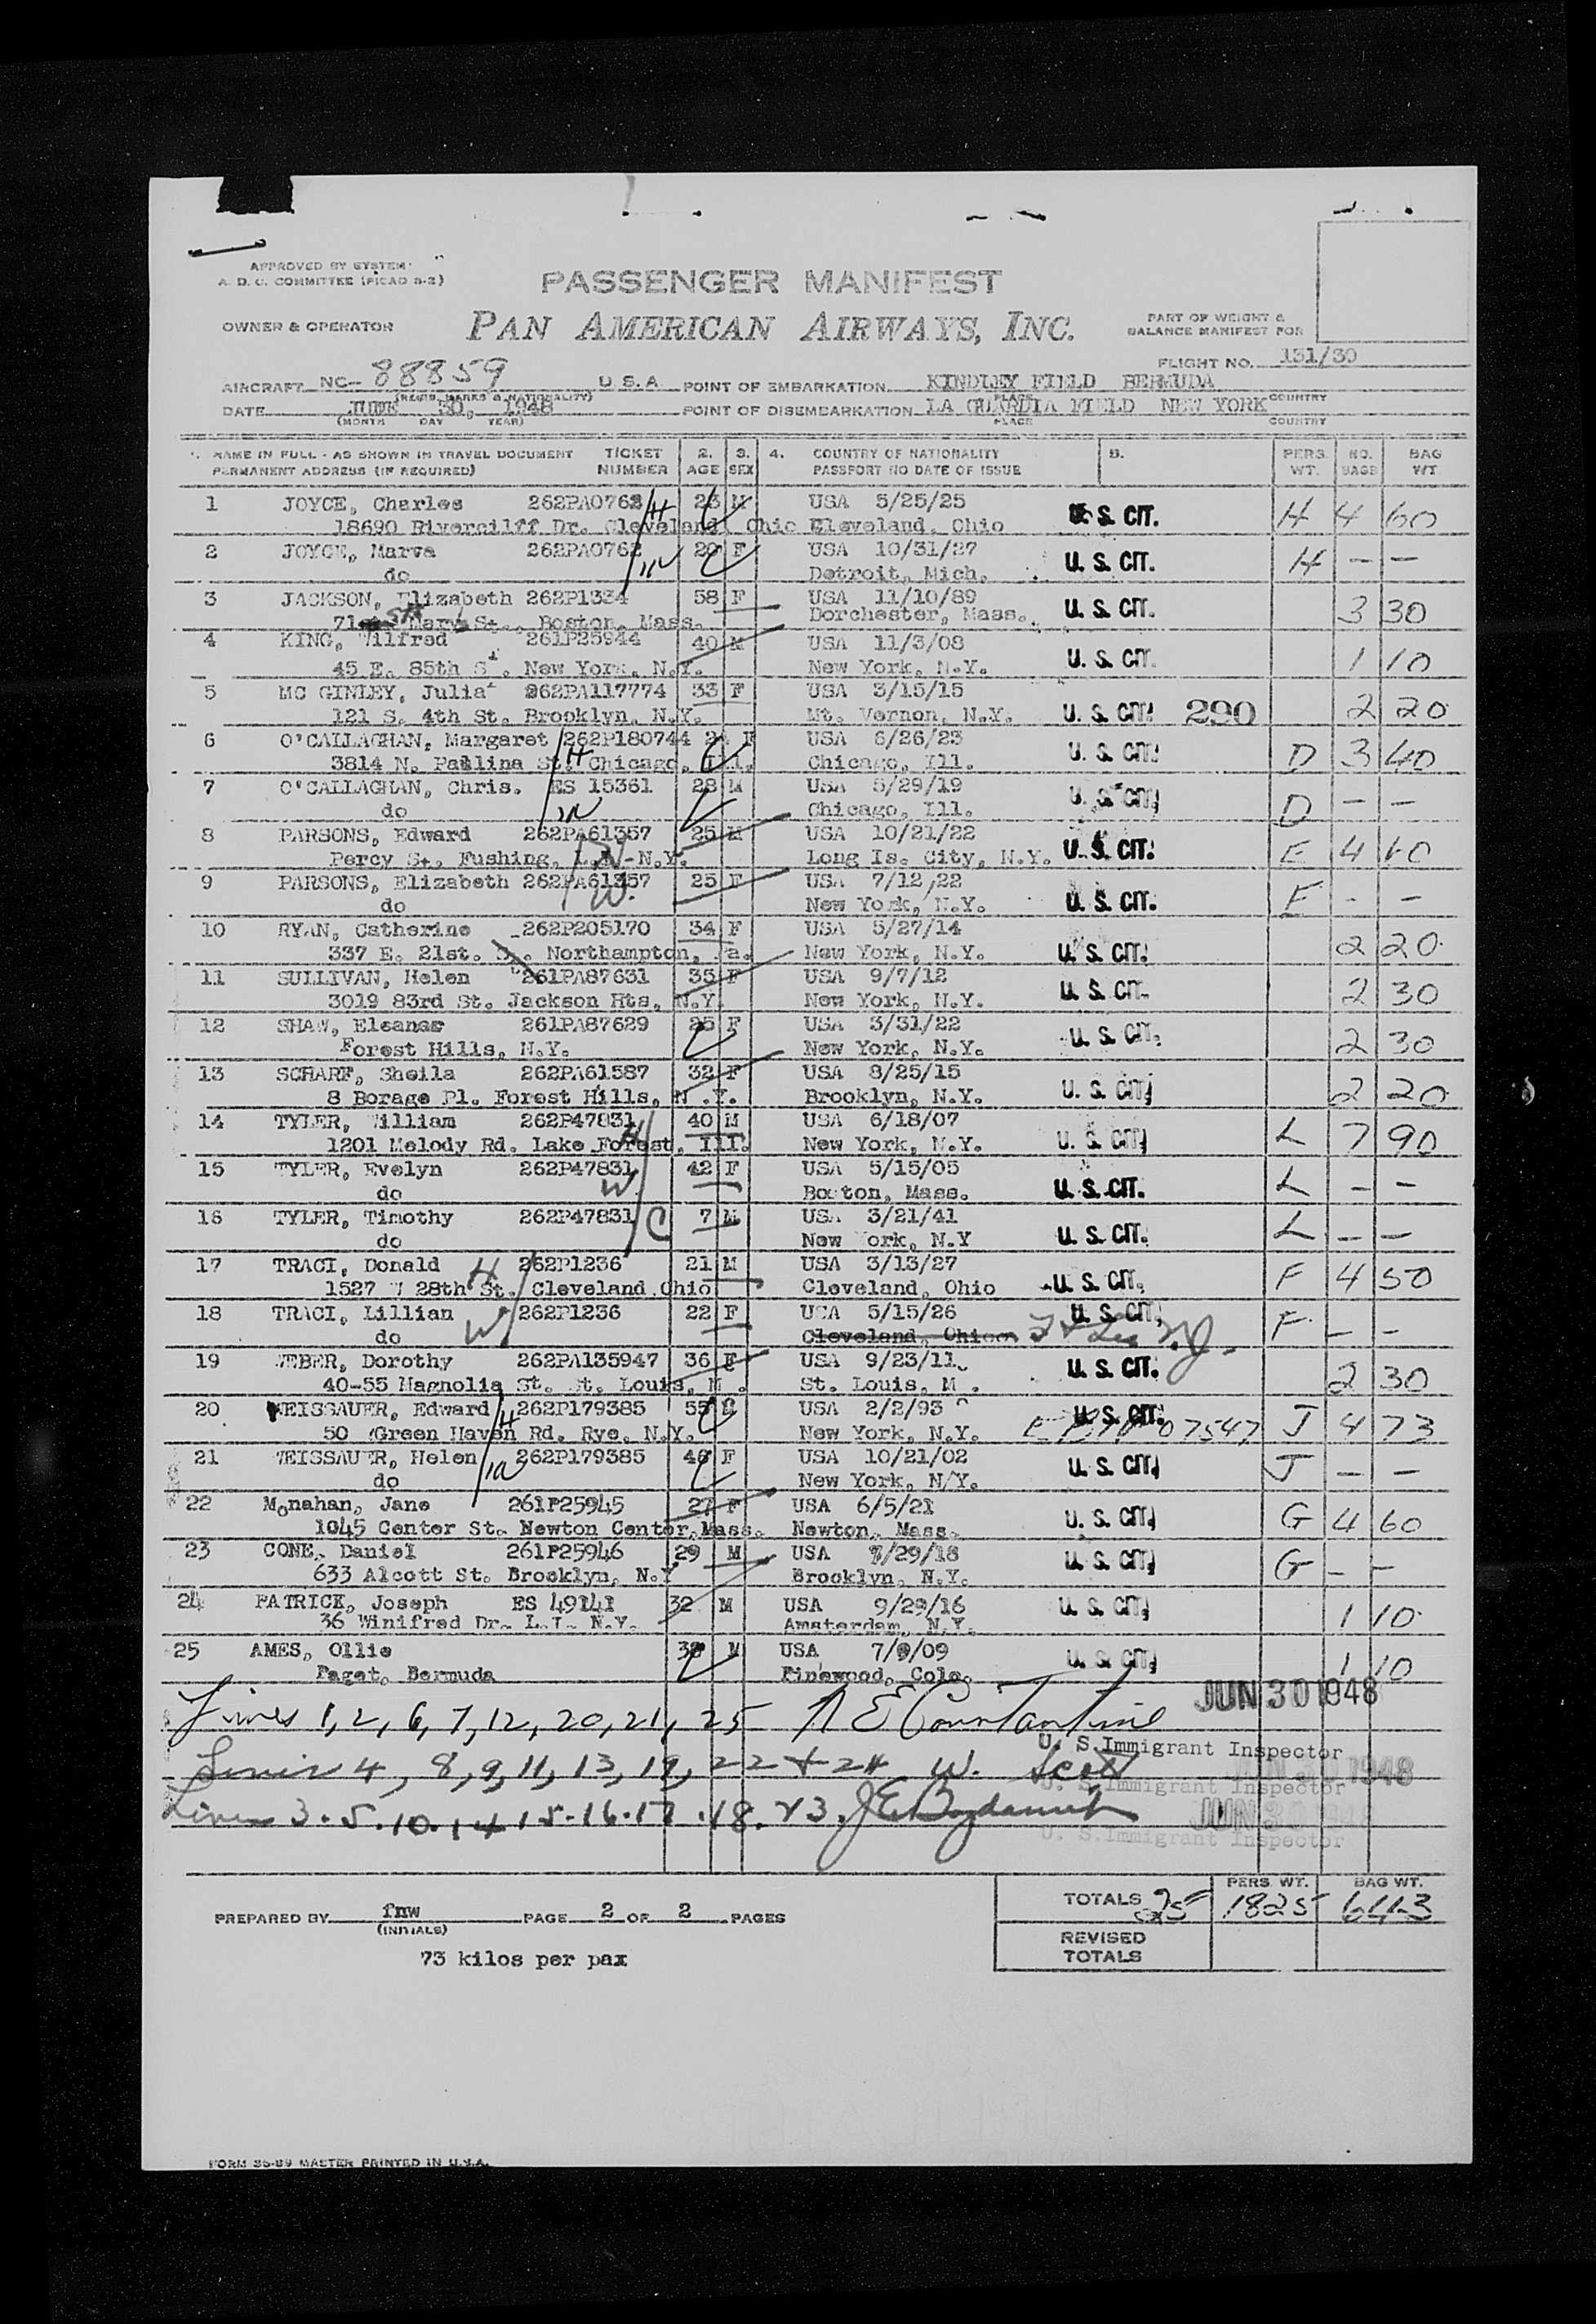 APPROVED BY SYSTEM
A. D. C. COMMITTEE (PICAO 3-2)
PASSENGER MANIFEST
OWNER & OPERATOR PAN AMERICAN AIRWAYS, INC.
PART OF WEIGHT &
BALANCE MANIFEST FOR
FLIGHT NO. 131/30
AIRCRAFT NC- 88859 U S A POINT OF EMBARKATION KINDLEY FIELD BERMUDA
(REGIS. MARKS & NATIONALITY) PLACE COUNTRY
DATE JUNE 30, 1948 POINT OF DISEMBARKATION LA GUARDIA FIELD NEW YORK
(MONTH DAY YEAR) PLACE COUNTRY
NAME IN FULL - AS SHOWN IN TRAVEL DOCUMENT TICKET 2. 3. 4. COUNTRY OF NATIONALITY 5. PERS. NO. BAG
PERMANENT ADDRESS (IF REQUIRED) NUMBER AGE SEX PASSPORT NO DATE OF ISSUE WT. BAGS WT
1 JOYCE, Charles 262PA0762 H 23 M USA 5/25/25 U. S. CIT. H 4 60
18690 Rivercilff Dr. Cleveland, Ohio Cleveland, Ohio
2 JOYCE, Marva 262PA0762 W 20 F USA 10/31/27 U. S. CIT. H - -
do Detroit, Mich.
3 JACKSON, Elizabeth 262P1334 58 F USA 11/10/89 U. S. CIT. 3 30
71 St Mary St., Boston, Mass. Dorchester, Mass.
4 KING, Wilfred 261P25944 40 M USA 11/3/08 U. S. CIT. 1 10
45 E. 85th St. New York, N.Y. New York, N.Y.
5 MC GINLEY, Julia 262PA117774 33 F USA 3/15/15 U. S. CIT. 290 2 20
121 S. 4th St. Brooklyn, N.Y. Mt. Vernon, N.Y.
6 O'CALLAGHAN, Margaret 262P180744 24 F USA 6/26/23 U. S. CIT. D 3 40
3814 N. Paulina St. H Chicago, Ill. Chicago, Ill.
7 O'CALLAGHAN, Chris. ES 15361 28 M USA 5/29/19 U. S. CIT. D - -
do W Chicago, Ill.
8 PARSONS, Edward 262PA61357 25 M USA 10/21/22 U. S. CIT. E 4 60
Percy St. Fushing, L.I. N.Y. Long Is. City, N.Y.
9 PARSONS, Elizabeth 262PA61357 25 F USA 7/12/22 U. S. CIT. E - -
do W. New York, N.Y.
10 RYAN, Catherine 262P205170 34 F USA 5/27/14 U. S. CIT. 2 20
337 E. 21st. St. Northampton, Pa. New York, N.Y.
11 SULLIVAN, Helen 261PA87631 35 F USA 9/7/12 U. S. CIT. 2 30
3019 83rd St. Jackson Hts, N.Y. New York, N.Y.
12 SHAW, Eleanor 261PA87629 25 F USA 3/31/22 U. S. CIT. 2 30
Forest Hills, N.Y. New York, N.Y.
13 SCHARF, Sheila 262PA61587 32 F USA 8/25/15 U. S. CIT. 2 20
8 Borage Pl. Forest Hills, N.Y. Brooklyn, N.Y.
14 TYLER, William 262P47831 H 40 M USA 6/18/07 U. S. CIT. L 7 90
1201 Melody Rd. Lake Forest, Ill. New York, N.Y.
15 TYLER, Evelyn 262P47831 42 F USA 5/15/05 U. S. CIT. L - -
do W Boston, Mass.
16 TYLER, Timothy 262P47831 C 7 M USA 3/21/41 U. S. CIT. L - -
do New York, N.Y
17 TRACI, Donald H 262P1236 21 M USA 3/13/27 U. S. CIT. F 4 50
1527 W 28th St. Cleveland Ohio Cleveland, Ohio
18 TRACI, Lillian 262P1236 22 F USA 5/15/26 U. S. CIT. F - -
do W Cleveland, Ohio Ft Lee N.J.
19 WEBER, Dorothy 262PA135947 36 F USA 9/23/11 U. S. CIT. 2 30
40-55 Magnolia St. St. Louis, M . St. Louis, M .
20 WEISSAUER, Edward H 262P179385 55 M USA 2/2/93 U. S. CIT. J 4 73
50 Green Haven Rd. Rye, N.Y. New York, N.Y. 07547
21 WEISSAUER, Helen W 262P179385 46 F USA 10/21/02 U. S. CIT. J - -
do New York, N/Y.
22 Monahan, Jane 261P25945 27 F USA 6/5/21 U. S. CIT. G 4 60
1045 Center St. Newton Center, Mass. Newton, Mass.
23 CONE, Daniel 261P25946 29 M USA /29/18 U. S. CIT. G - -
633 Alcott St. Brooklyn, N.Y. Brooklyn, N.Y.
24 PATRICK, Joseph ES 49141 32 M USA 9/29/16 U. S. CIT. 1 10
36 Winifred Dr. L.I. N.Y. Amsterdam, N.Y.
25 AMES, Ollie 38 M USA 7/9/09 U. S. CIT. 1 10
Paget, Bermuda Pinewood, Colo.
Lines 1, 2, 6, 7, 12, 20, 21, 25 N E Constantine JUN 30 1948
U. S. Immigrant Inspector
Lines 4, 8, 9, 11, 13, 19, 22 + 24 W. Scott JUN 30 1948
U. S. Immigrant Inspector
Lines 3. 5. 10. 14 15. 16. 17. 18. 23. JUN 30 1948
U. S. Immigrant Inspector
PERS WT. BAG WT.
TOTALS 25 1825 643
PREPARED BY fnw PAGE 2 OF 2 PAGES
(INITIALS)
REVISED
TOTALS
73 kilos per pax
FORM 35-89 MASTER PRINTED IN U.S.A.